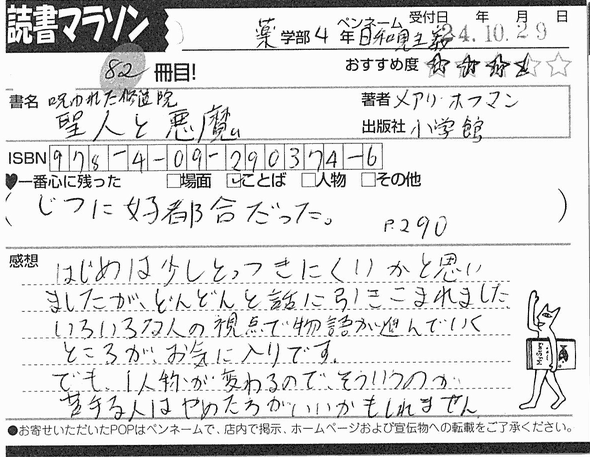 読書マラソン
82 冊目!
薬 学部 4 年
ペンネーム 日和見主義
受付日 24.10.29 年 月 日
おすすめ度 ☆☆☆☆☆
書名 呪われた修道院
聖人と悪魔
著者 メアリ・ホフマン
出版社 小学館
ISBN 978-4-09-290374-6
♥一番心に残った □場面 ☑ことば □人物 □その他
(じつに好都合だった。 P.290 )
感想
はじめは少しとっつきにくいかと思い
ましたが、どんどんと話に引きこまれました
いろいろな人の視点で物語が進んでいく
ところが、お気に入りです。
でも、1人物が変わるので、そういうのが
苦手な人はやめたほうがいいかもしれません
●お寄せいただいたPOPはペンネームで、店内で掲示、ホームページおよび宣伝物への転載をご了承ください。